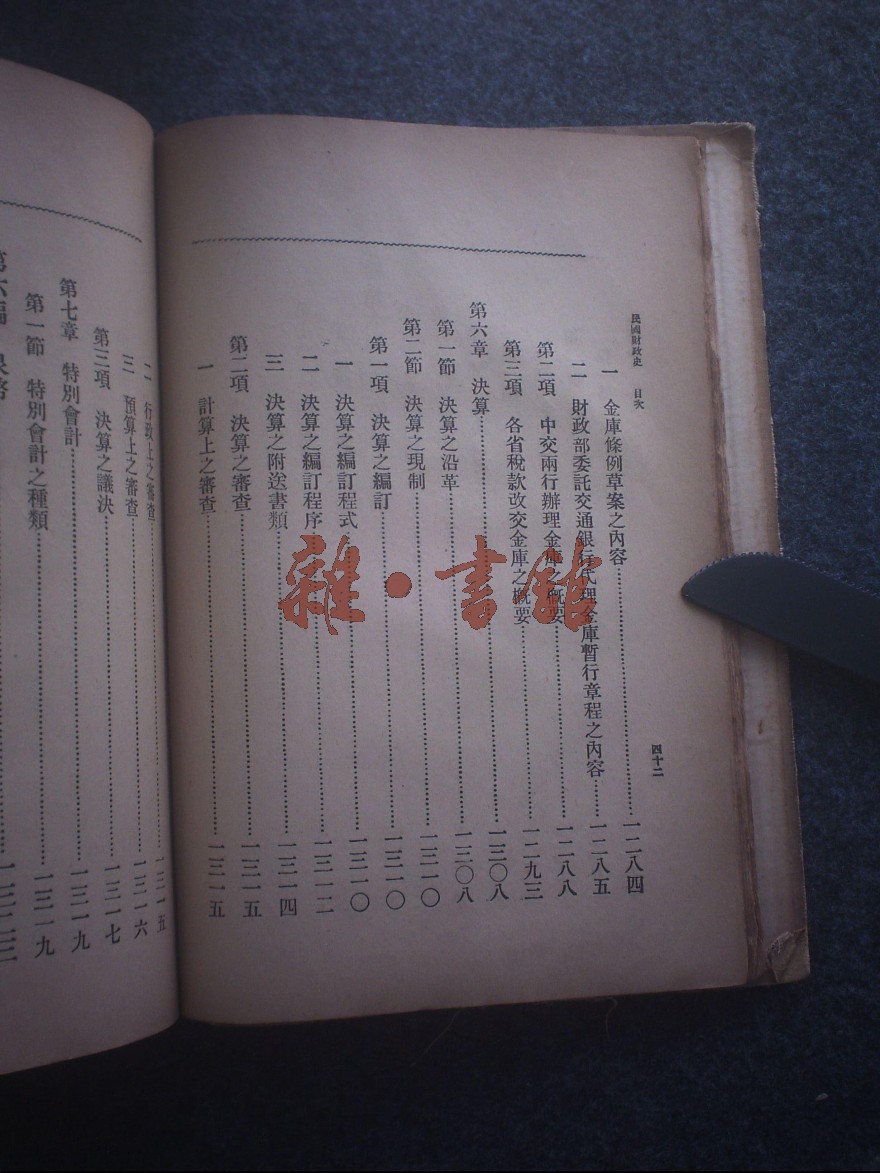 民國財政史 目次 四十二
一 金庫條例草案之內容……一二八四
二 財政部委託交通銀行代理金庫暫行章程之內容……一二八五
第二項 中交兩行辦理金庫 概要……一二八八
第三項 各省稅款改交金庫之概要……一二九三
第六章 決算……一三〇八
第一節 決算之沿革……一三〇八
第二節 決算之現制……一三一〇
第一項 決算之編訂……一三一〇
一 決算之編訂程式……一三一〇
二 決算之編訂程序……一三一二
三 決算之附送書類……一三一四
第二項 決算之審查……一三一五
一 計算上之審查……一三一五
二 行政上之審查……一三一五
三 預算上之審查……一三一六
第三項 決算之議決……一三一七
第七章 特別會計……一三一九
第一節 特別會計之種類……一三一九
第六編
雜·書館